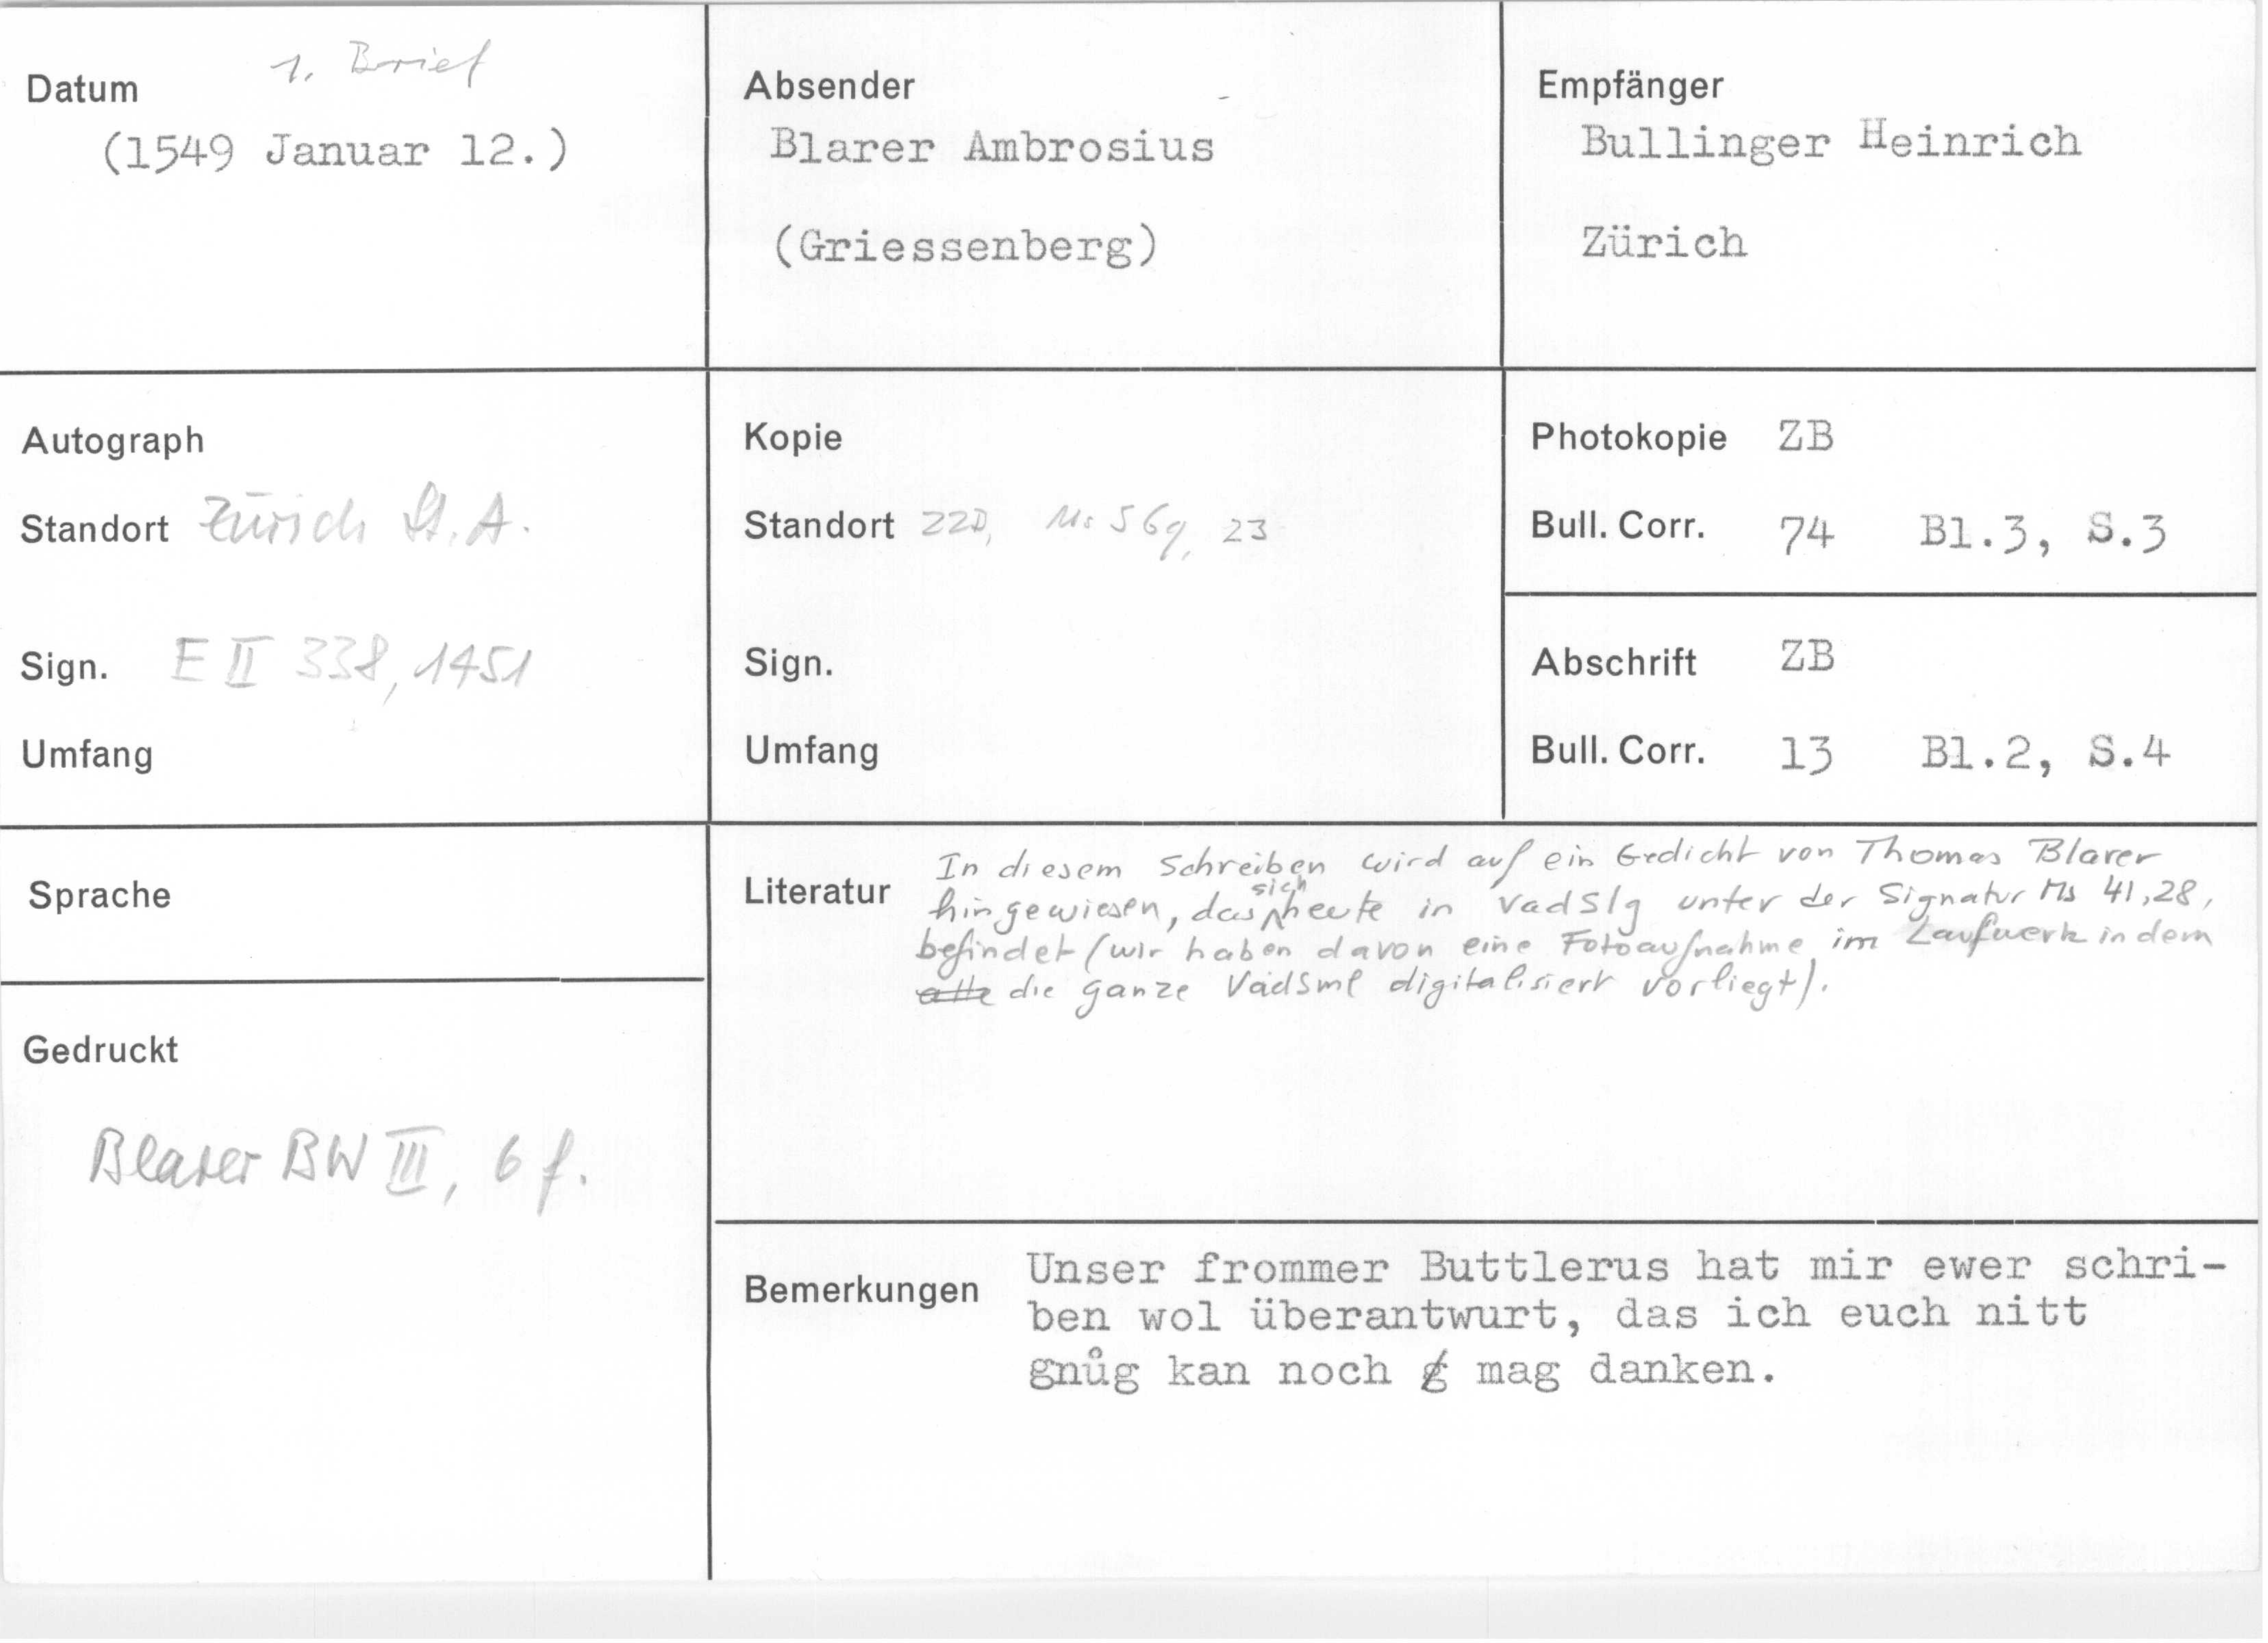 Datum 1. Brief
(1549 Januar 12.)
Absender
Blarer Ambrosius
(Griessenberg)
Empfänger
Bullinger Heinrich
Zürich
Autograph
Standort Zürich St.A.
Sign. E II 338, 1451
Umfang
Kopie
Standort ZZD, Ms S 69, 23
Sign.
Umfang
Photokopie ZB
Bull. Corr. 74 Bl.3, S.3
Abschrift ZB
Bull. Corr. 13 Bl.2, S.4
Sprache
Gedruckt
Blarer BW III, 6 f.
Literatur
In diesem Schreiben wird auf ein Gedicht von Thomas Blarer
hingewiesen, das sich heute in VadSlg unter der Signatur Ms 41,28,
befindet (wir haben davon eine Fotoaufnahme im Laufwerk in dem
alle die ganze VadSml digitalisiert vorliegt).
Bemerkungen
Unser frommer Buttlerus hat mir ewer schri-
ben wol überantwurt, das ich euch nitt
gnůg kan noch g mag danken.